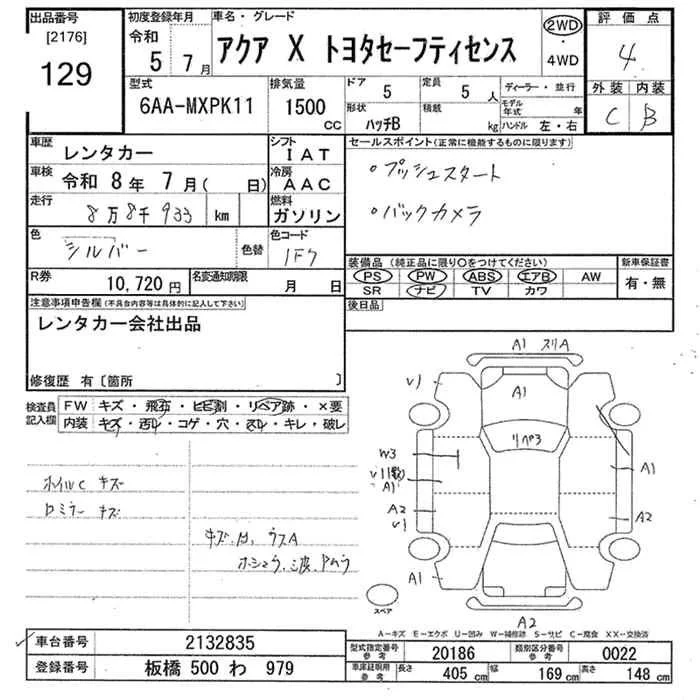 出品番号
[2176]
129
初度登録年月
令和
5 7月
車名・グレード
アクア X トヨタセーフティセンス
2WD
・
4WD
評価点
4
外装 内装
C B
型式
6AA-MXPK11
排気量
1500
CC
ドア 5
定員 5 人
形状 ハッチB
積載 kg
ディーラー・並行
モデル年式 年
ハンドル 左・右
車歴 レンタカー
シフト IAT
車検 令和 8年 7月( 日)
冷房 AAC
走行 8万8千933 km
燃料 ガソリン
色 シルバー
色替
色コード 1F7
R券 10,720円
名変通知期限 月 日
セールスポイント(正常に機能するものに限ります)
・プッシュスタート
・バックカメラ
装備品(純正品に限り○をつけてください)
新車保証書
PS PW ABS エアB AW
SR ナビ TV カワ
有・無
後日品
注意事項申告欄(不具合内容等は具体的に記入して下さい)
レンタカー会社出品
修復歴 有〔箇所 〕
検査員記入欄
FW キズ・飛石・ヒビ割・リペア跡・×要
内装 キズ・汚れ・コゲ・穴・スレ・キレ・破レ
ホイルC キズ
ロミラー キズ
A1 スリA
V1
A1
リペ3
W3
A1
A1
A2
V1
A2
A1
スペア
A2
A－キズ E－エクボ U－凹み W－補修跡 S－サビ C－腐食 XX－交換済
車台番号 2132835
登録番号 板橋 500 わ 979
型式指定番号 参考 20186
類別区分番号 参考 0022
車庫証明用 参考 長さ 405 cm 幅 169 cm 高さ 148 cm